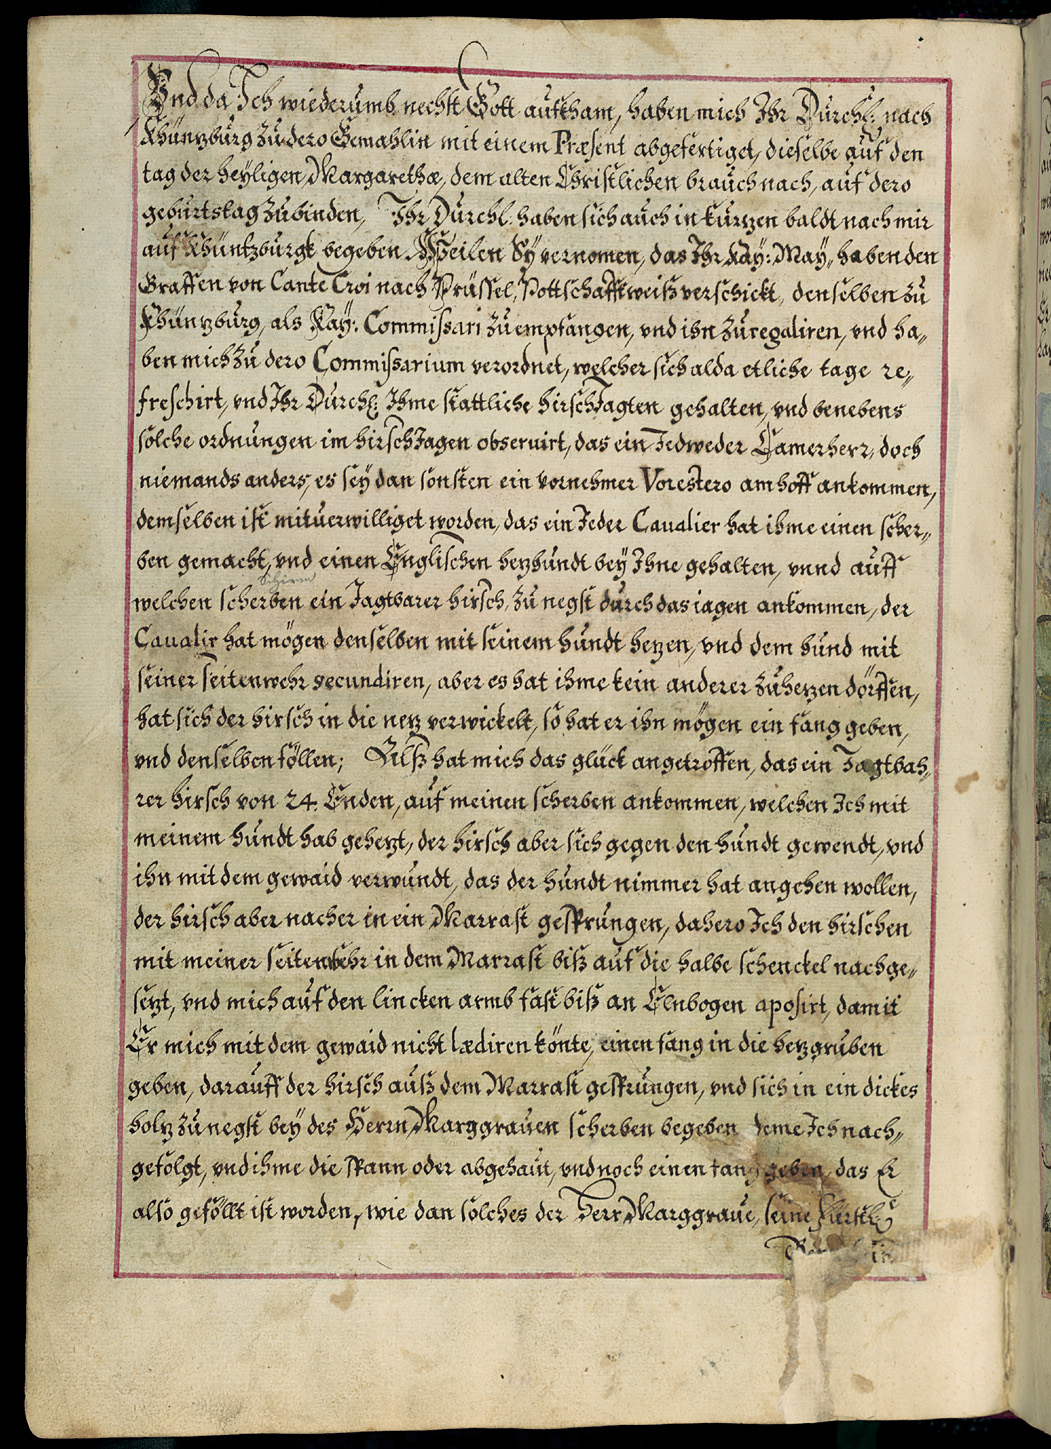 Vnd da Ich wiederumb nechst Gott aufkham, haben mich Ihr Dürchl: nach
Khüntzbürg zu dero Gemahlin mit einem Præsent abgefertiget, dieselbe auf den
tag der heÿligen Margarethæ, dem alten Christlichen brauch nach, auf dero
gebürtstag zübinden, Ihr Dürchl. haben sich auch in kürtzen baldt nach mir
auf Khüntzbürgk begeben. Weilen Sÿ vernomen, das Ihr Kaÿ: Maÿ,, haben den
Graffen von Cante Croi nach Prüssel, Pottschafftweiß verschickt, denselben zü
Khüntzbürg, als Kaÿ: Commissari zü empfangen, vnd ihn züregaliren, vnd ha,,
ben mich zü dero Commissarium verordnet, welcher sich alda etliche tage re,,
freschirt, vnd Ihr Dürchl: Ihme stattliche hirschJagten gehalten, vnd benebens
solche ordnüngen im hirschJagen obseruirt, das ein Jedweder Camerherr, doch
niemands anders, es seÿ dan sonsten ein vornehmer Vorestero am hoff ankommen,
demselben ist mituerwilliget worden, das ein Jeder Caualier hat ihme einen scher,,
ben gemacht, vnd einen Englischen hetzhündt beÿ Ihne gehalten, vnnd aüff
Schirm
welchen scherben ein Jagtbarer hirsch, zü negst dürch das iagen ankommen, der
Caualir hat mögen denselben mit seinem hündt hetzen, vnd dem hünd mit
seiner seitenwehr secundiren, aber es hat ihme kein anderer zühetzen dörffen,
hat sich der hirsch in die netz verwickelt, so hat er ihn mögen ein fang geben,
vnd denselben föllen; Alß hat mich das glück angetroffen, das ein Jagtbah,,
rer hirsch von 24. Enden, auf meinen scherben ankommen, welchen Ich mit
meinem hündt hab gehetzt, der hirsch aber sich gegen den hündt gewendt, vnd
ihn mit dem gewaid verwündt, das der hündt nimmer hat angehen wollen,
der hirsch aber nacher in ein Marrast gesprüngen, dahero Ich den hirschen
mit meiner seitenwehr in dem Marrast biß auf die halbe schenckel nachge,,
setzt, vnd mich auf den lincken armb fast biß an Elnbogen aposirt, damit
Er mich mit dem gewaid nicht lædiren könte, einen fang in die hetzgrüben
geben, daraüff der hirsch aüß dem Marrast gesprüngen, vnd sich in ein dickes
holtz zü negst beÿ des Herrn Marggrauen scherben begeben deme Ich nach,,
gefolgt, vnd ihme die spann oder abgehaüt, vnd noch einen fang geben, das Er
also geföllt ist worden, wie dan solches der Herr Marggraue, seine Fürstl: